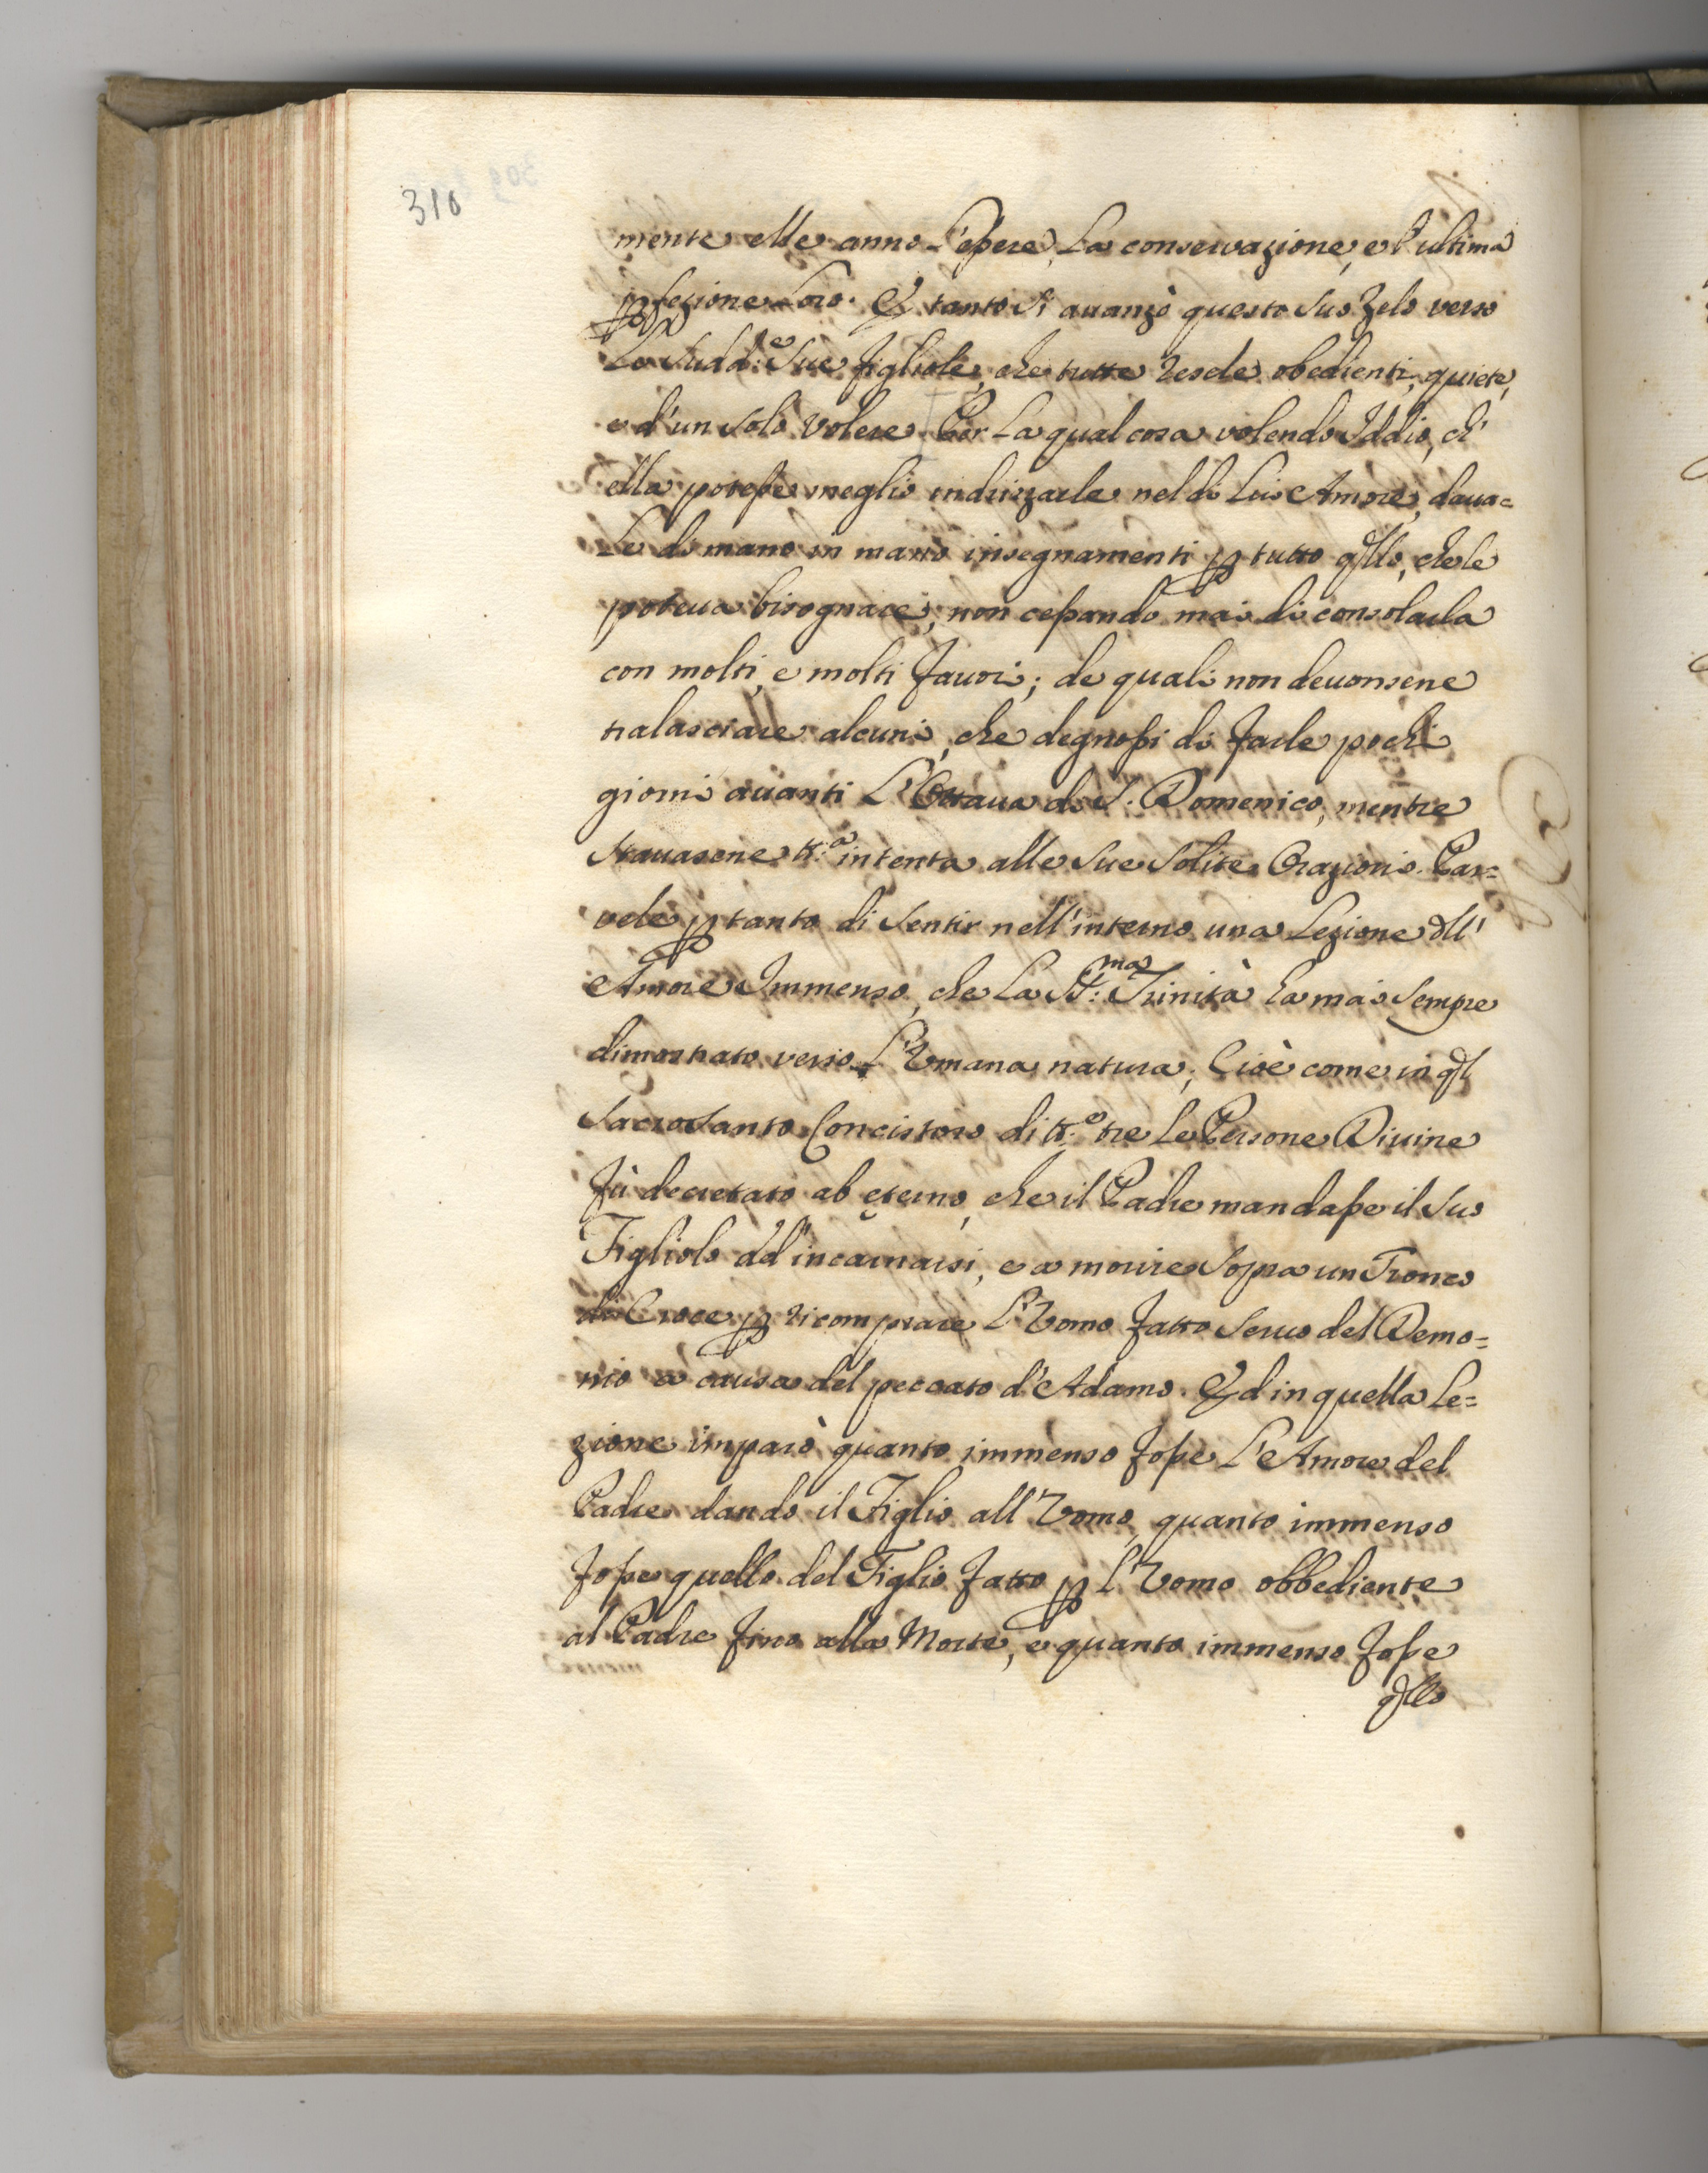 310
mente elle anno l'essere, la conservazione, e l'ultima
ꝑfezione loro. E tanto si avanzò questo suo zelo verso
le sudd:e sue figliole, che tutte resele obedienti, quiete,
e d'un solo volere. Per la qual cosa volendo Iddio, ch'
ella potesse meglio indrizzarle nel di lui Amore, daua=
le di mano in mano insegnamenti ꝑ tutto qllo, che le
poteua bisognare, non cessando mai di consolarla
con molti, e molti fauori; de quali non deuonsene
tralasciare alcuni, che degnossi di farle pochi
giorni auanti l'Ottaua di S. Domenico, mentre
stauasene tt:a intenta alle sue solite Orazioni. Par=
vele ꝑtanto di sentir nell'interno una Lezione dll'
Amore Immenso, che la SS:ma Trinità ha mai sempre
dimostrato verso l'Vmana natura; Cioè come in ql
sacrosanto Concistoro di tt:e tre le Persone Diuine
fù decretato ab ęterno, che il Padre mandasse il suo
Figliolo ad incarnarsi, e a morire sopra un Tronco
di Croce ꝑ ricomprare l'Vomo fatto seruo del Demo=
nio a causa del peccato d'Adamo. Ed in quella Le=
zione imparò quanto immenso fosse l'Amore del
Padre dando il Figlio all'Vomo, quanto immenso
fosse quello del Figlio fatto ꝑ l'Vomo obbediente
al Padre fino alla Morte, e quanto immenso fosse
qllo